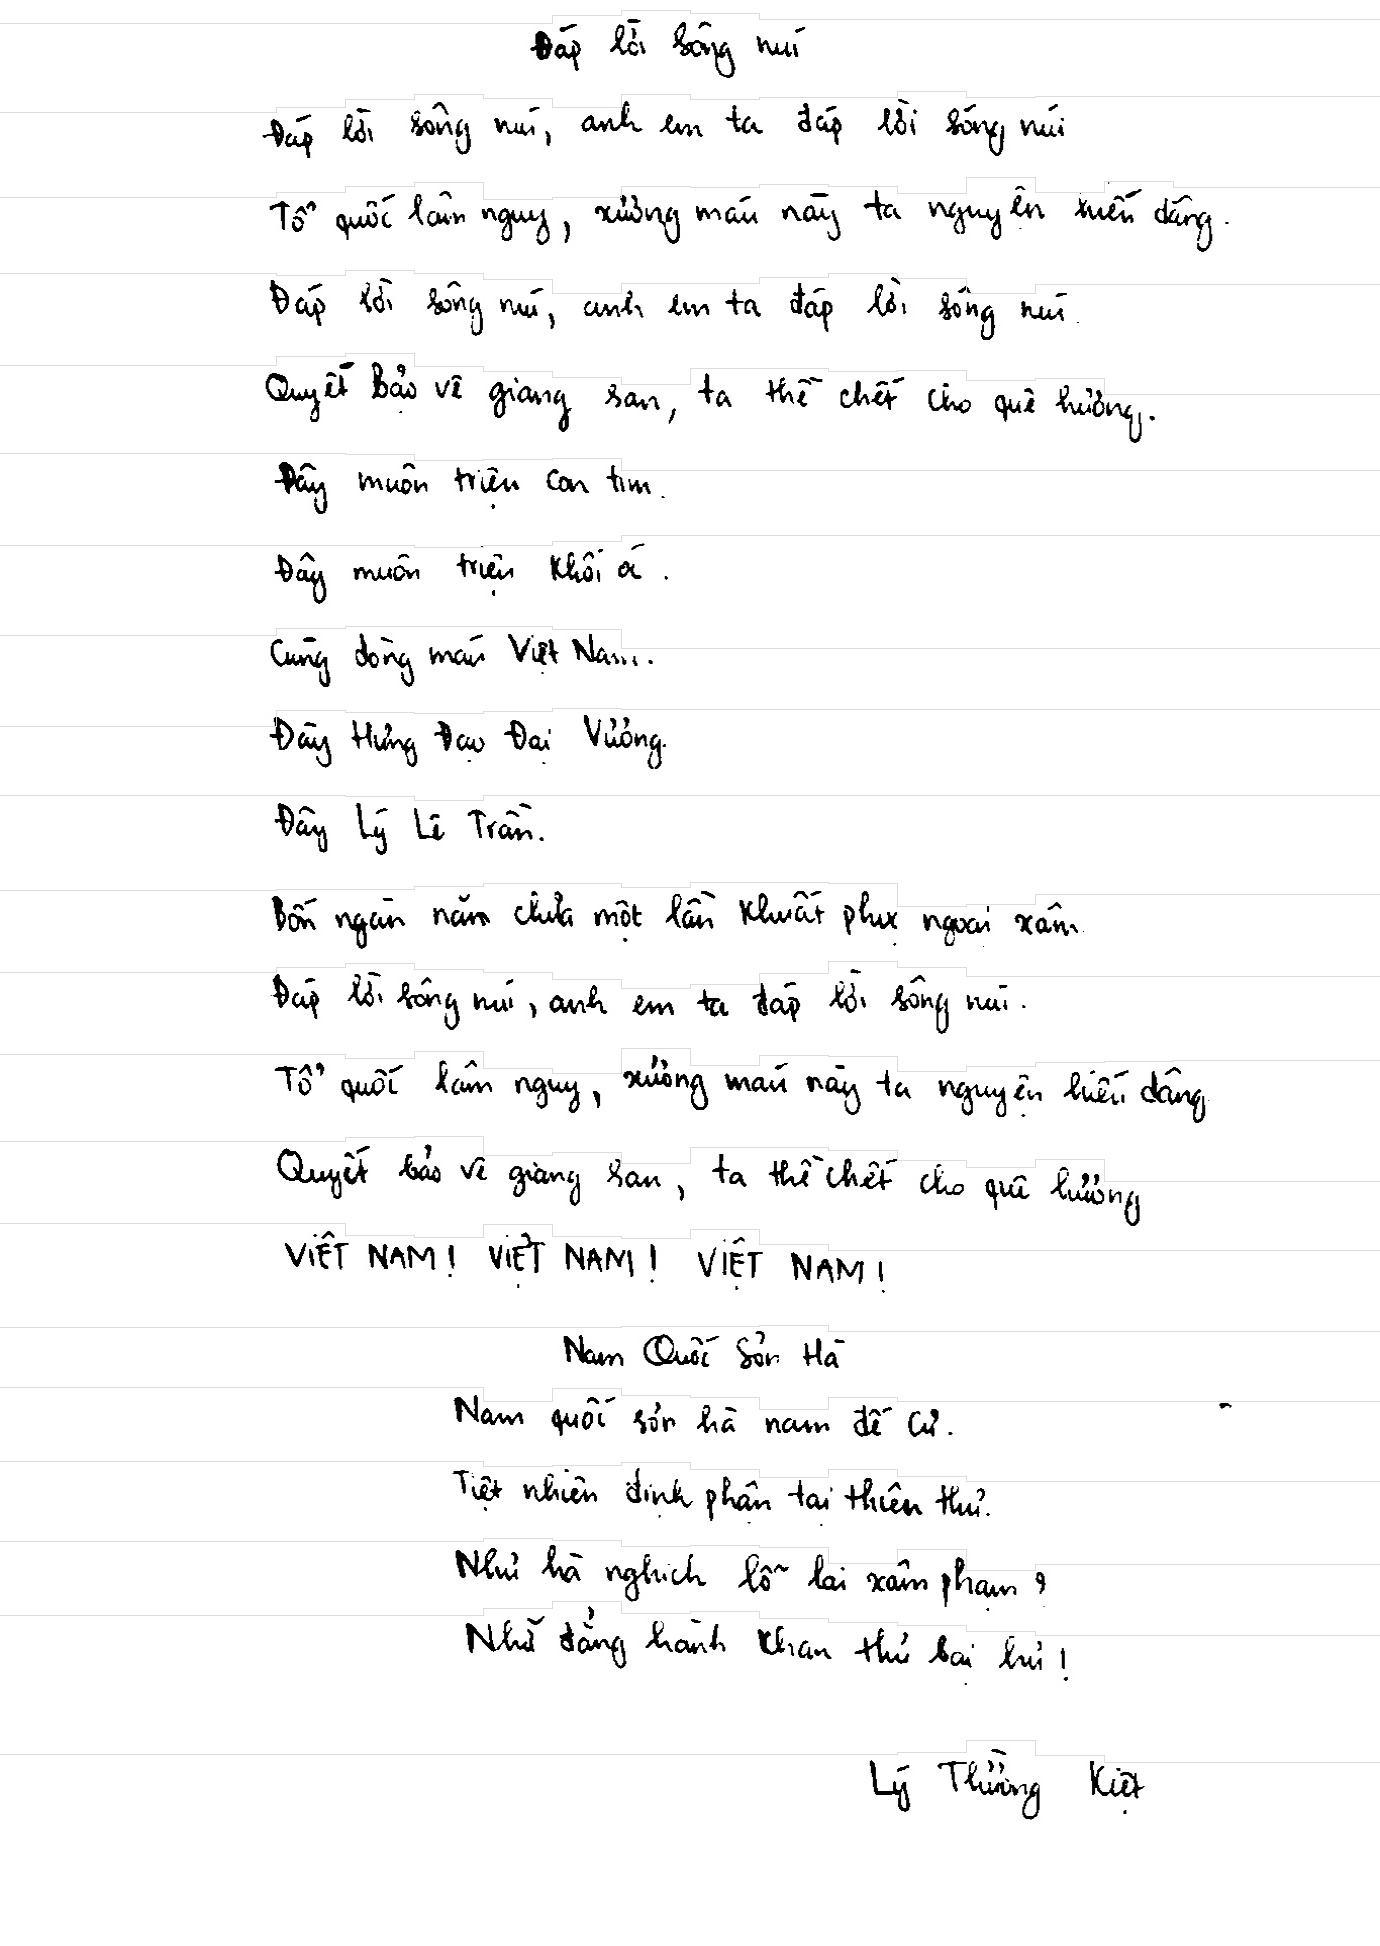 Đáp lời sông núi
Đáp lời sông núi, anh em ta đáp lời sông núi
Tổ quốc lâm nguy, xương máu này ta nguyện hiến dâng.
Đáp lời sông núi, anh em ta đáp lời sông núi.
Quyết bảo vệ giang san, ta thề chết cho quê hương.
Đây muôn triệu con tim.
Đây muôn triệu khối óc.
Cùng dòng máu Việt Nam.
Đây Hưng Đạo Đại Vương.
Đây Lý Lê Trần.
Bốn ngàn năm chưa một lần khuất phục ngoại xâm.
Đáp lời sông núi, anh em ta đáp lời sông núi.
Tổ quốc lâm nguy, xương máu này ta nguyện hiến dâng
Quyết bảo vệ giang san, ta thề chết cho quê hương
VIỆT NAM! VIỆT NAM! VIỆT NAM!
Nam Quốc Sơn Hà
Nam quốc sơn hà nam đế cư.
Tiệt nhiên định phận tại thiên thư.
Như hà nghịch lỗ lai xâm phạm?
Nhữ đẳng hành khan thủ bại hư!
Lý Thường Kiệt